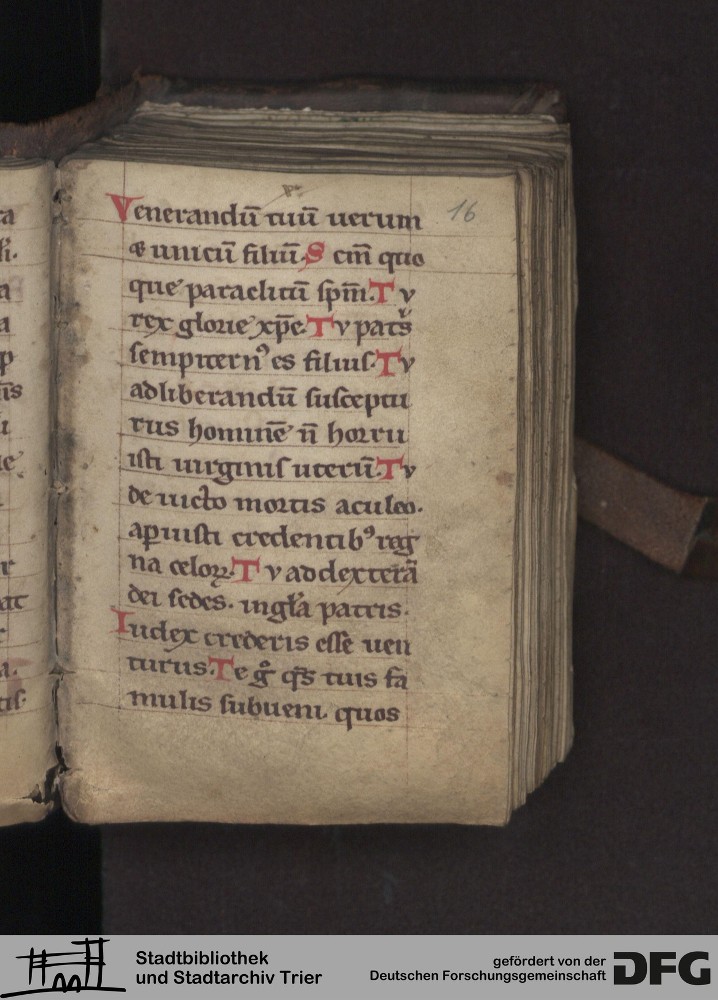 Venerandū tuū uerum
& unicū filiū. S cm̄ quo
que paraclitū sp̄m. T v
rex glorie xp̄e. T v patr̄s
sempitern⁹ es filius. T v
ad liberandū susceptu
rus hominē n̄ horru
isti uirginis uterū. T v
deuicto mortis aculeo.
aperuisti credentib⁹ reg
na celoꝝ. T v ad dexterā
dei sedes. in gl̄a patris.
Iudex crederis esse uen
turus. T e g̊ q̄s tuis fa
mulis subueni. quos
16
Stadtbibliothek
und Stadtarchiv Trier
gefördert von der
Deutschen Forschungsgemeinschaft
DFG